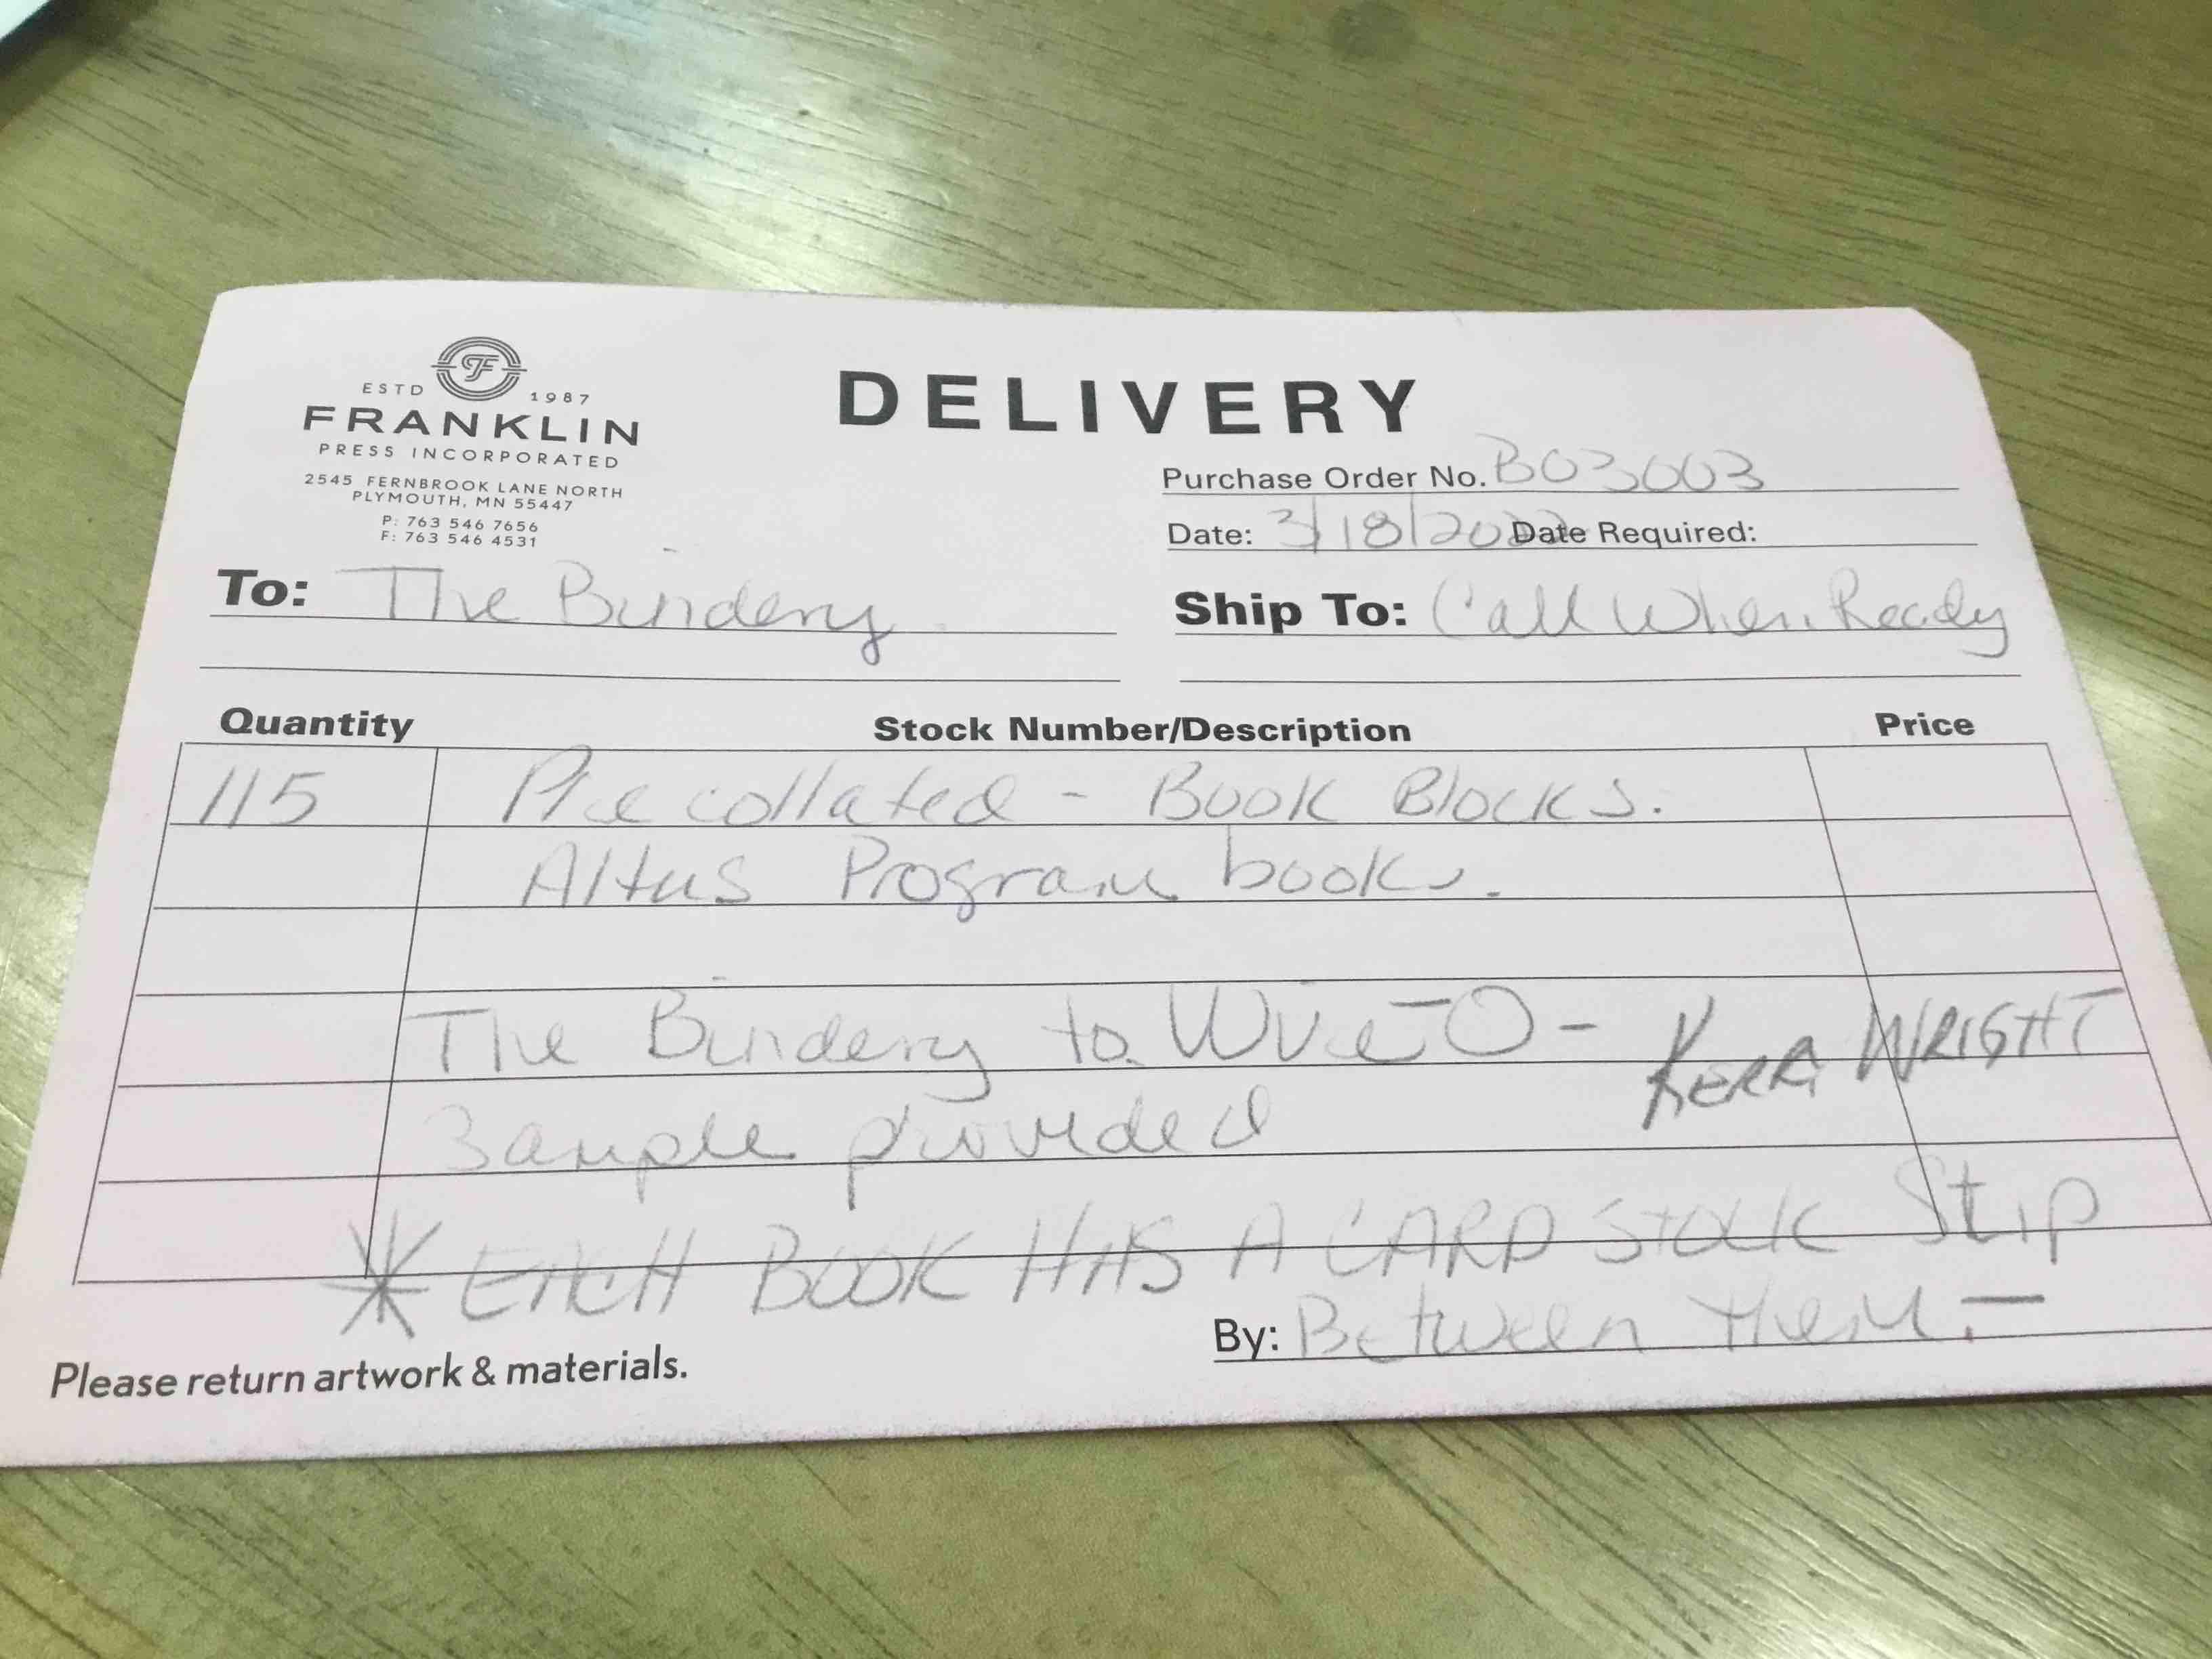 ESTD 1987
FRANKLIN
PRESS INCORPORATED
2545 FERNBROOK LANE NORTH
PLYMOUTH, MN 55447
P: 763 546 7656
F: 763 546 4531
DELIVERY
Purchase Order No. B03003
Date: 3/18/2022 Date Required:
To: The Bindery
Ship To: Call When Ready
Quantity Stock Number/Description Price
115 Precollated - Book Blocks.
Altus Program books.
The Bindery to Wire-O - KERRI WRIGHT
Sample provided
* EACH BOOK HAS A CARD STOCK Stip
By: Between them -
Please return artwork & materials.